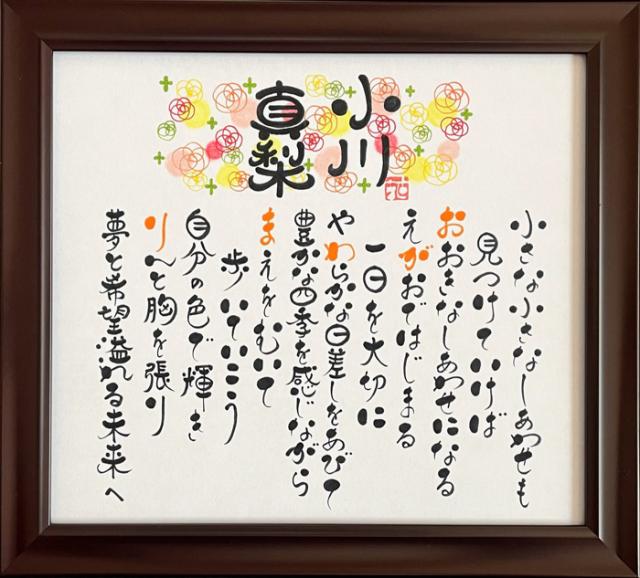 小川
真梨
小さな小さなしあわせも
見つけていけば
おおきなしあわせになる
えがおではじまる
一日を大切に
やわらかな日差しをあびて
豊かな四季を感じながら
まえをむいて
歩いていこう
自分の色で輝き
りんと胸を張り
夢と希望溢れる未来へ